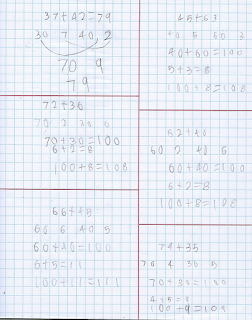 37+42=79
30 7 40 2
70 9
79
72+36
70 2 30 6
70+30=100
6+2=8
100+8=108
66+45
60 6 40 5
60+40=100
6+5=11
100+11=111
45+63
40 5 60 3
40+60=100
5+3=8
100+8=108
62+46
60 2 40 6
60+40=100
6+2=8
100+8=108
74+35
70 4 30 5
70+30=100
4+5=9
100+9=109